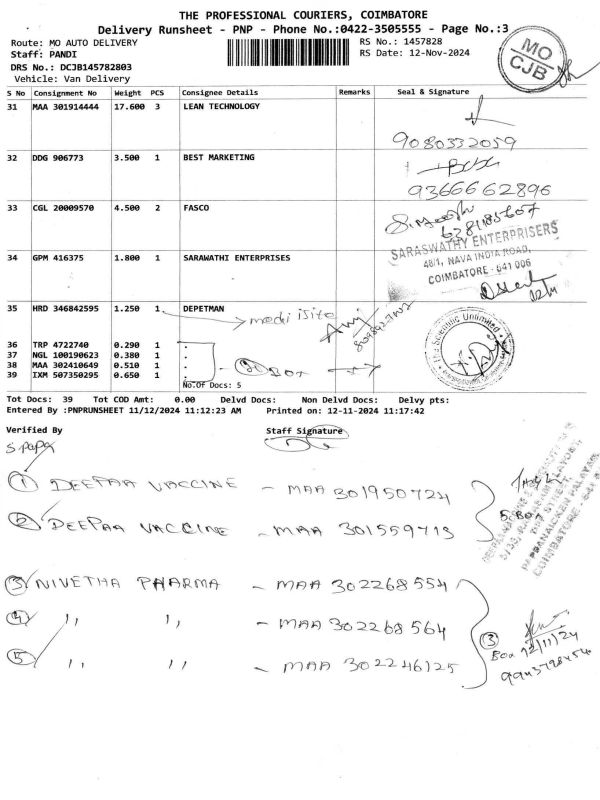 THE PROFESSIONAL COURIERS, COIMBATORE
Delivery Runsheet - PNP - Phone No.:0422-3505555 - Page No.:3
Route: MO AUTO DELIVERY
RS No.: 1457828
Staff: PANDI
RS Date: 12-Nov-2024
DRS No.: DCJB145782803
Vehicle: Van Delivery
MO
CJB
S No Consignment No Weight PCS Consignee Details Remarks Seal & Signature
31 MAA 301914444 17.600 3 LEAN TECHNOLOGY
9080332059
32 DDG 906773 3.500 1 BEST MARKETING
9366662896
33 CGL 20009570 4.500 2 FASCO
6381185607
34 GPM 416375 1.800 1 SARAWATHI ENTERPRISES
SARASWATHY ENTERPRISERS
48/1, NAVA INDIA ROAD,
COIMBATORE - 641 006
35 HRD 346842595 1.250 1 DEPETMAN
medi iSite
Scientific Unlimited
36 TRP 4722740 0.290 1 .
37 NGL 100190623 0.380 1 .
38 MAA 302410649 0.510 1 .
39 IXM 507350295 0.650 1 .
Box
No.Of Docs: 5
Tot Docs: 39 Tot COD Amt: 0.00 Delvd Docs: Non Delvd Docs: Delvy pts:
Entered By :PNPRUNSHEET 11/12/2024 11:12:23 AM Printed on: 12-11-2024 11:17:42
Verified By
Staff Signature
① DEEPAA VACCINE - MAA 301950724
② DEEPAA VACCINE - MAA 301559713
5 Box
COIMBATORE - 641
③ NIVETHA PHARMA - MAA 302268554
④ ,, ,, - MAA 302268564
⑤ ,, ,, - MAA 302246125
③
Box 12/11/24